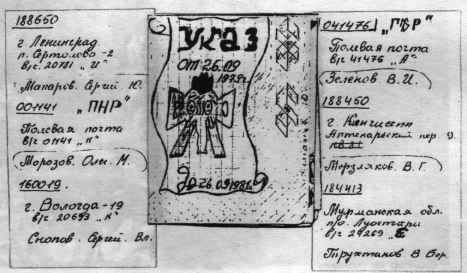 188650
г. Ленинград
п. Сертолово-2
в/г. 20781 "И"
Макаров. Сергей Ю.
001141 "ПНР"
Полевая почта
в/г 01141 "П"
Морозов. Оли. М.
160019.
г. Вологда-19
в/г 20693 "К"
Снопов. Сергей. Вл.
Указ
от 26.09
1979г.
До 26.09.1981г.
041476 "ГДР"
Полевая почта
в/г 41476 "А"
Зеленов В.И.
188450
г. Кингисепп
Аптекарский пер. 9
Мерзляков. В.Г.
184413
Мурманская обл.
п/о. Луостари
в/г 24269 "Е"
Трухтанов В Бор.